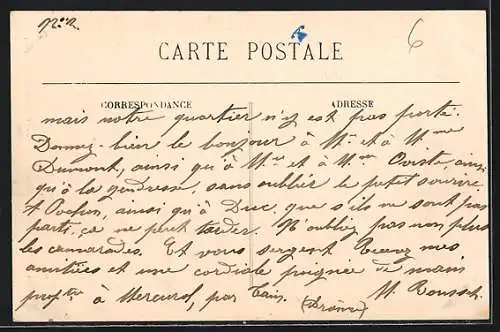 N° 2
6
CARTE POSTALE
CORRESPONDANCE ADRESSE
mais notre quartier n'y est pas porté.
Donnez-bien le bonjour à Mr et à Mme
Dumont, ainsi qu'à Mr et à Mme ainsi
qu'à la gendresse, sans oublier le petit
ainsi qu'à Duc, que s'ils ne sont pas
parti, ça ne peut tarder. N'oubliez pas non plus
les camarades. Et vous sergent Recevez mes
amitiées et une cordiale poignée de main
M. Rousset
à Mercurol, par Tain. (Drôme)